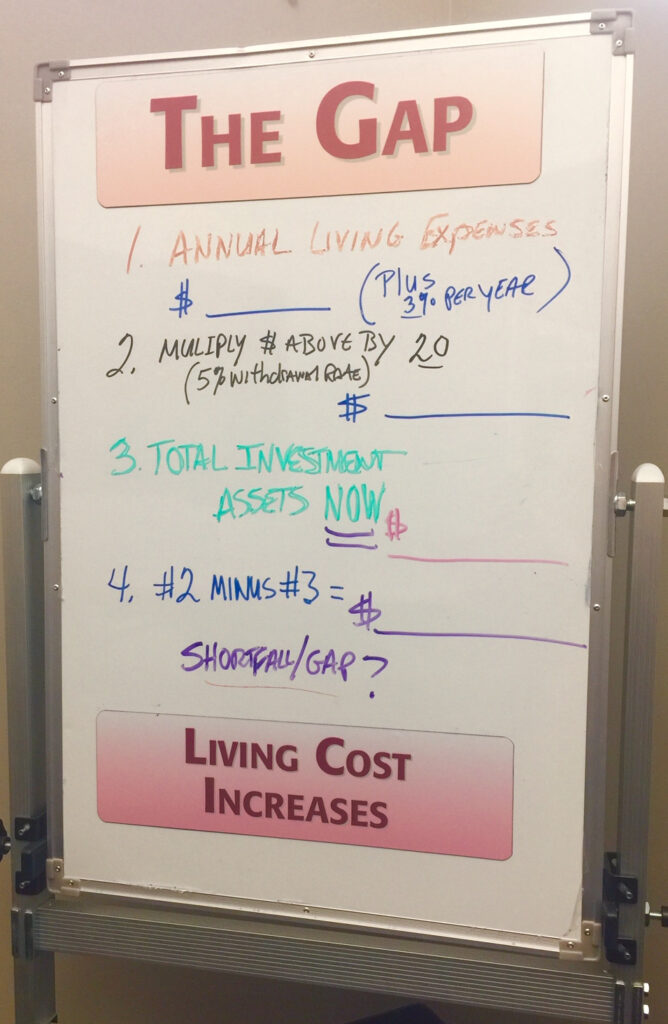 THE GAP
1. ANNUAL LIVING EXPENSES
$ ______ (Plus
3% PER YEAR)
2. MULIPLY $ ABOVE BY 20
(5% Withdrawal RATE)
$ ______
3. TOTAL INVESTMENT
ASSETS NOW
$ ______
4. #2 MINUS #3 = $ ______
SHORTFALL/GAP?
LIVING COST
INCREASES